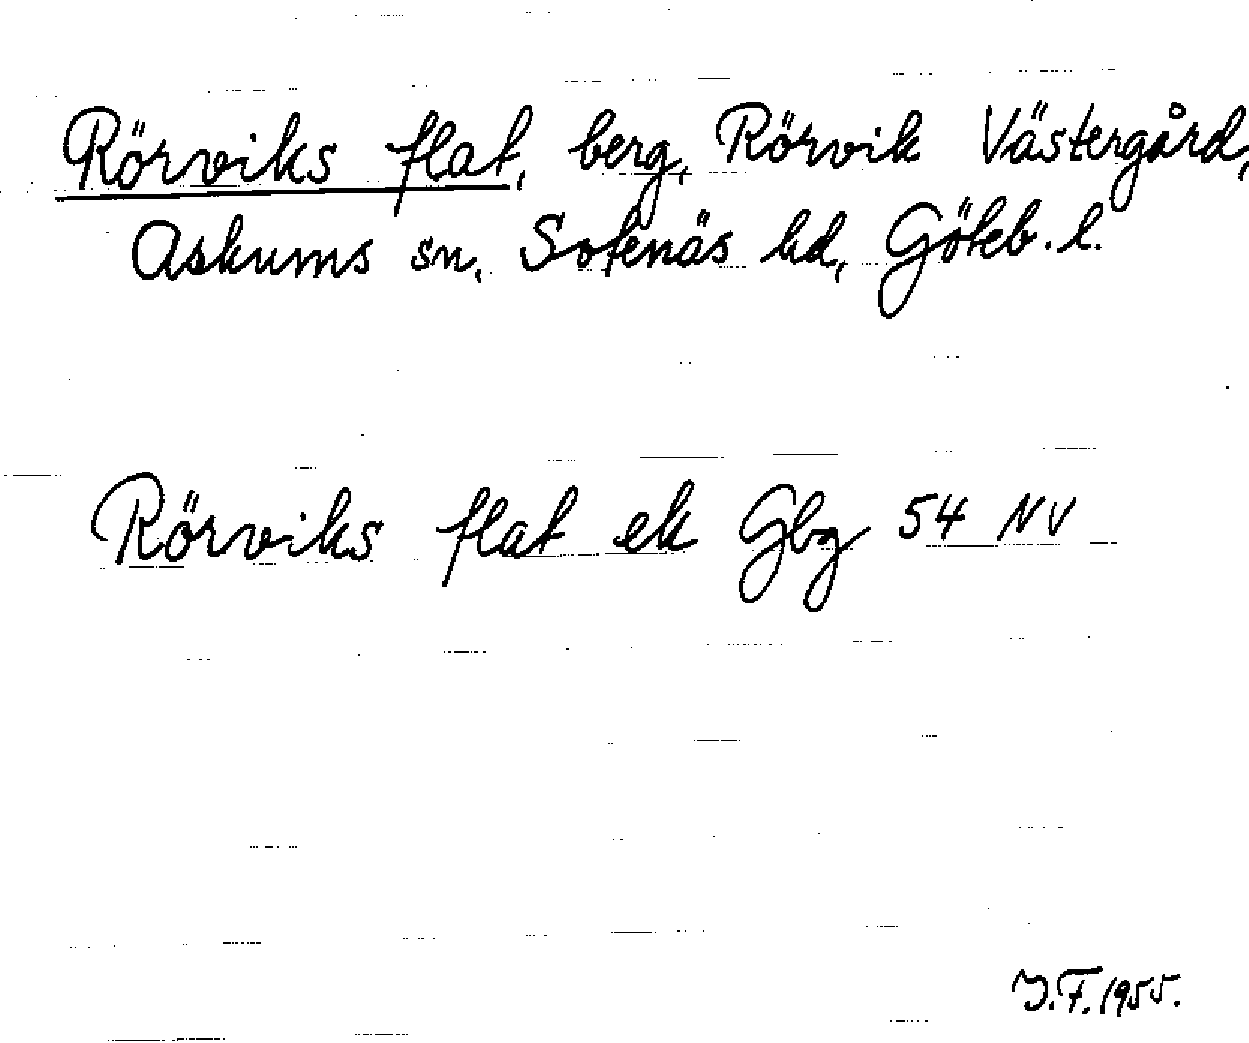 Rörviks flat, berg, Rörvik Västergård,
Askums sn, Sotenäs hd, Göteb. l.
Rörviks flat ek Gbg 54 NV
J.F. 1955.